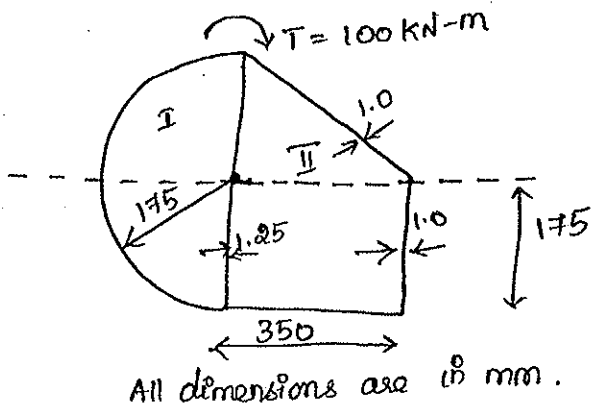 T = 100 KN-m
I
1.0
II
175
1.25
1.0
175
350
All dimensions are in mm.